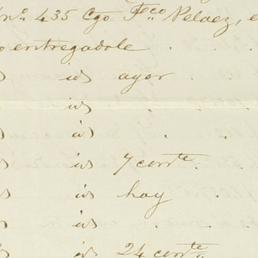 nº 435 Cgo Fco Pelaez, e
o entregadole . .
s id ayer .
s id . .
s id . . .
s id 7 corrte. .
s id hoy .
s id . . .
s id 24 corrte.